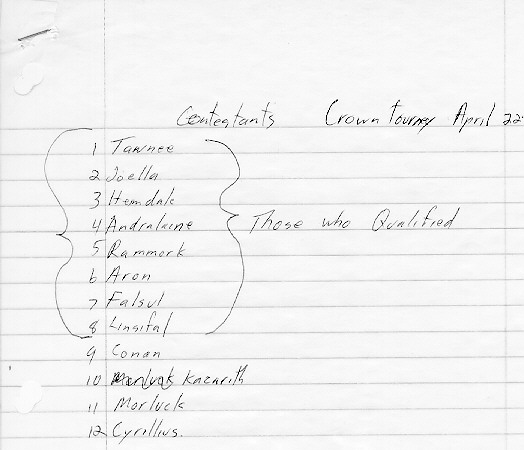 Contestants Crown Tourney April 22
1 Tawnee
2 Joella
3 Hemdale
4 Andralaine
5 Rammork
6 Aron
7 Falsul
8 Linsifal
Those who Qualified
9 Conan
10 Kazarith
11 Morluck
12 Cyrillius.